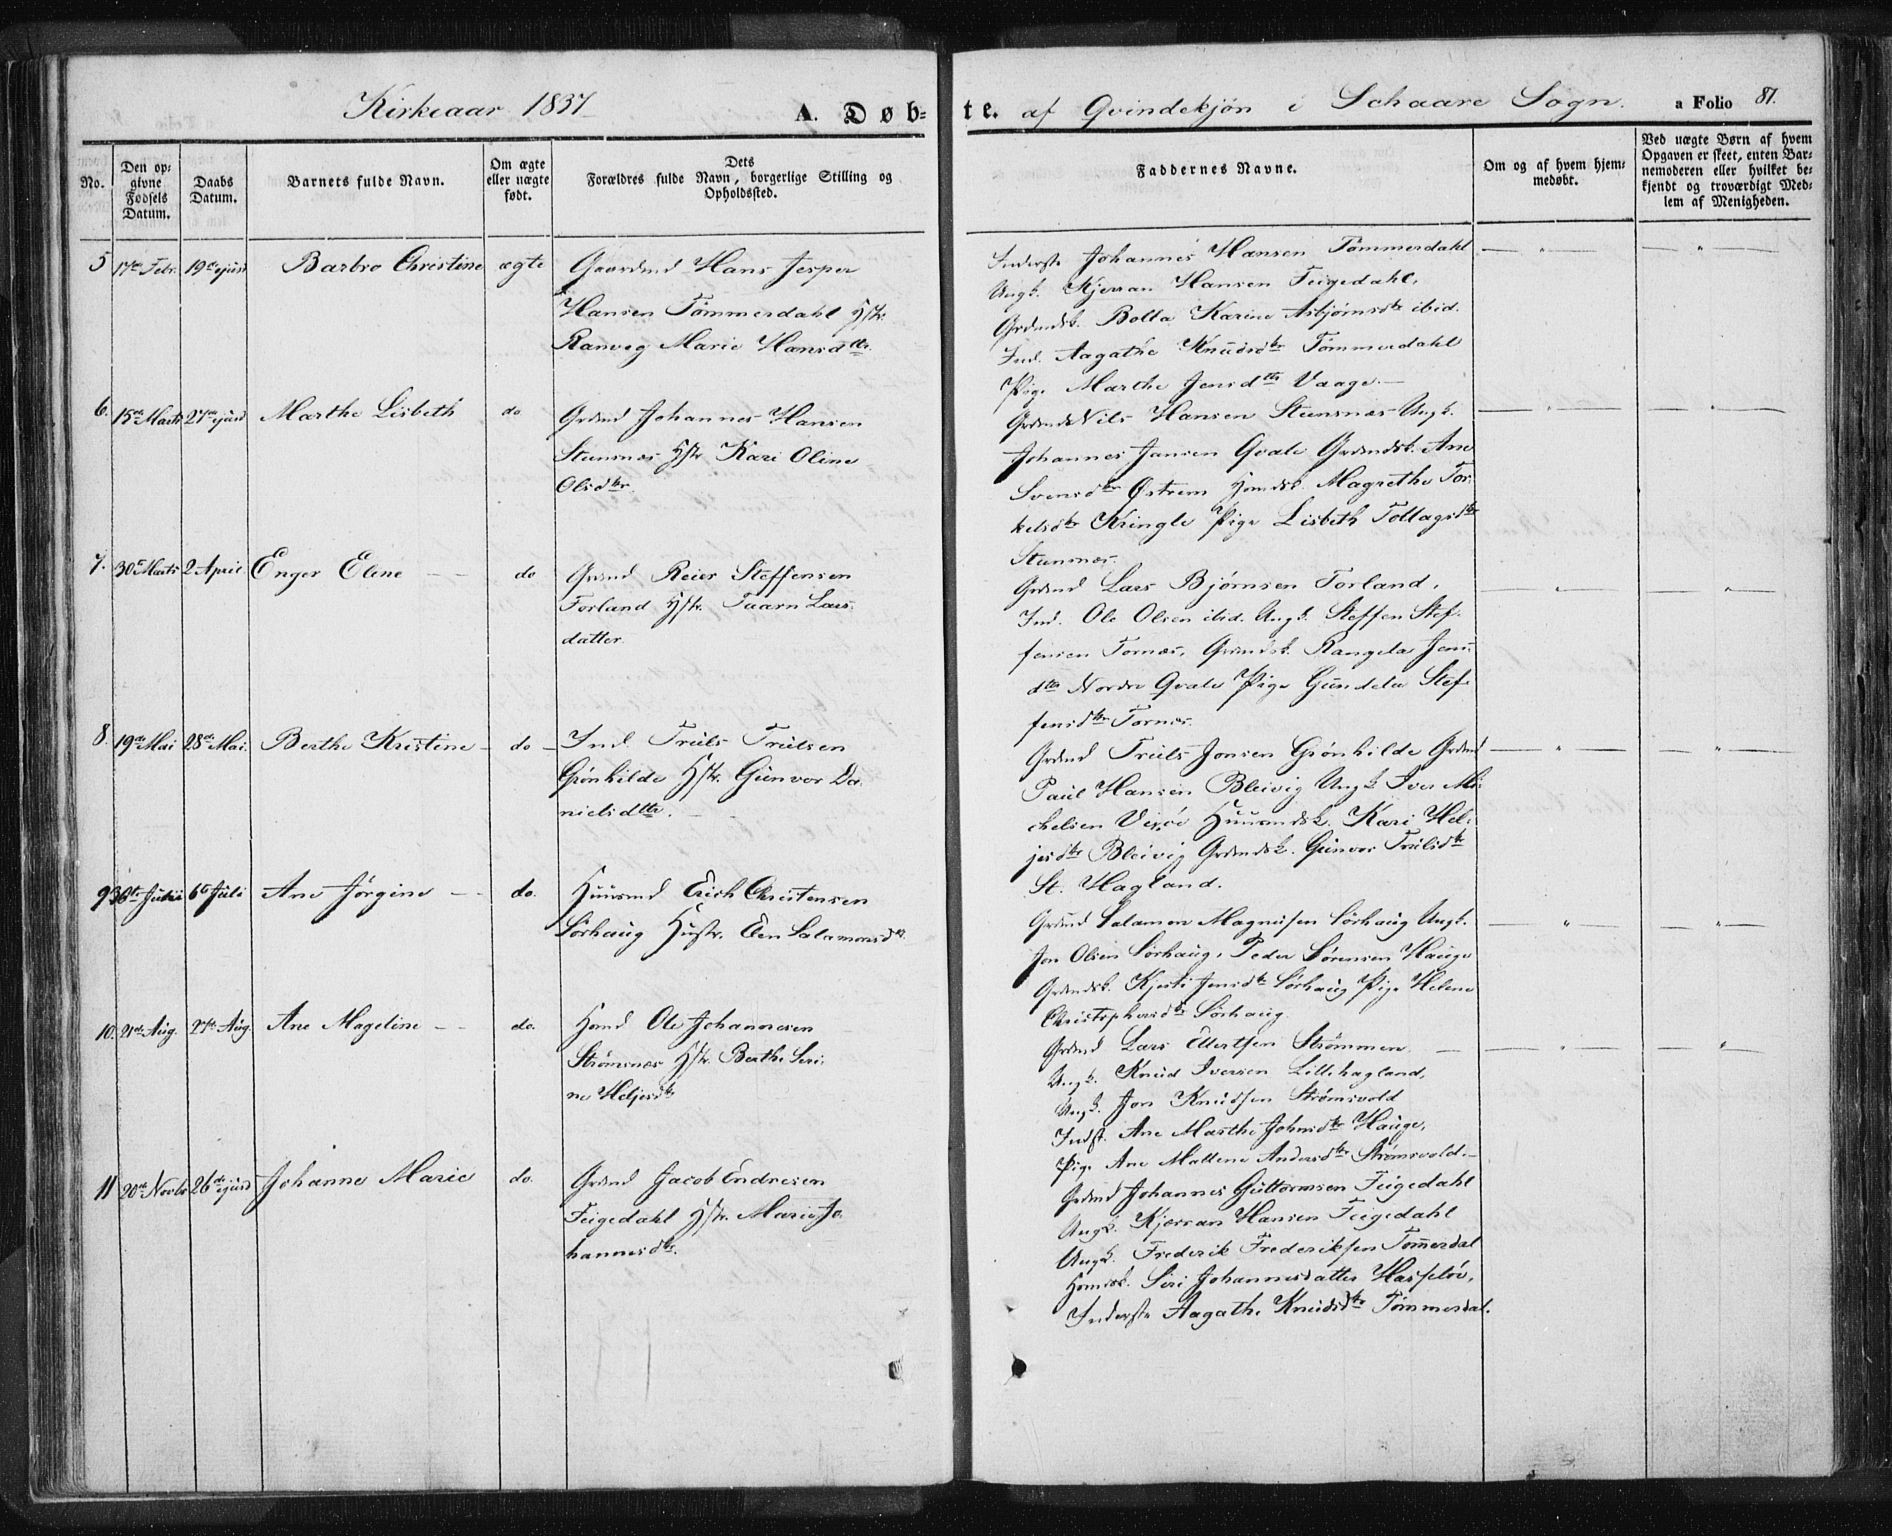 Kirkeaar 1837 A. Døb=
te. af Qvindekjøn i Schaare Sogn. a Folio 87.
No.
Den op=
givne
Fødsels
Datum.
Daabs
Datum.
Barnets fulde Navn.
Om ægte
eller uægte
født.
Dets
Forældres fulde Navn, borgerlige Stilling og
Opholdssted.
Faddernes Navne.
Om og af hvem hjem=
medøbt.
Ved uægte Børn af hvem
Opgaven er skeet, enten Bar=
nemoderen eller hvilket be=
kjendt og troværdigt Med=
lem af Menigheden.
5 17de Febr. 19de ejusd Barbro Christine ægte
Gaardmd Hans Jesper
Hansen Tømmerdahl Hstr.
Ranveg Marie Hansdtr.
Inderste Johannes Hansen Tømmerdahl
Ungk. Kjerran Hansen Feigedahl,
Grdmdsk. Bolla Karine Asbjørnsdtr ibid.
Ind. Aagathe Knudsdtr Tømmerdahl
Pige Marthe Jensdtr Vaage.
6. 15de Marts 27de ejusd Marthe Lisbeth do
Grdmd Johannes Hansen
Steensnæs Hstr Kari Oline
Olsdtr.
Grdmd Nils Hansen Steensnæs Ungk.
Johannes Jansen Qvale Grdmdsk. Ane
Svensdtr Østrem Hmdsk. Magrethe Tor
kelsdtr Kringle Pige Lisbeth Tollagsdtr
Steensnæs.
7. 30te Marts 2 April Enger Eline do
Grdmd Reier Steffensen
Forland Hstr. Taarn Lars
datter
Grdmd Lars Bjørnsen Forland,
Ind. Ole Olsen ibid. Ungk. Steffen Stef
fensen Fornæs, Grdmdsk. Rangela Jens
dtr Nordre Qvale Pige Gundela Stef
fensdtr Fornæs.
8. 19de Mai 28de Mai. Berthe Kristine do
Ind. Truls Trulsen
Grønhilde Hstr. Gunvor Da
nielsdtr.
Grdmd Truls Jonsen Grønhilde Grdmd
Paul Hansen Bleivig Ungk Iver Mi
chelsen Hunsmdsk. Kari Hel
jesdtr Bleivig Grdmdsk. Gunvor Trulsdtr
St. Hagland.
9 30te Juni 6te Juli Ane Jørgine do.
Huusmd Erich Christensen
Sørhaug Hustr. Elen Salamonsdr.
Grdmd Salamon Magnusen Sørhaug Ungk.
Jon Olsen Sørhaug, Peder Sørensen Hauge
Grdmdsk. Kjersti Jensdtr Sørhaug Pige Helene
Christophersdtr Sørhaug
10. 21de Aug. 27de Aug Ane Mageline do.
Hmd Ole Johannesen
Strømsnæs Hstr Berthe Seri
ne Heljesdtr
Grdmd Lars Ellertsen Strømmen.
Ungk. Knud Iversen Lillehagland,
Ungk. Jon Knudsen Strømsvold
Indst. Ane Marthe Johnsdtr Hauge,
Pige Ane Mallene Andersdtr Strømsvold.
11 20de Novbr 26de ejusd Johanne Marie do.
Grdmd Jacob Endresen
Feigedahl Hstr. Marie Jo
hannesdtr.
Grdmd Johannes Guttormsen Feigedahl
Ungk. Kjerran Hansen Feigedahl
Ungk. Frederik Frederiksen Tømerdal
Hmdsk. Siri Johannesdatter Hasseløe,
Inderste Aagathe Knudsdtr Tømmerdal.